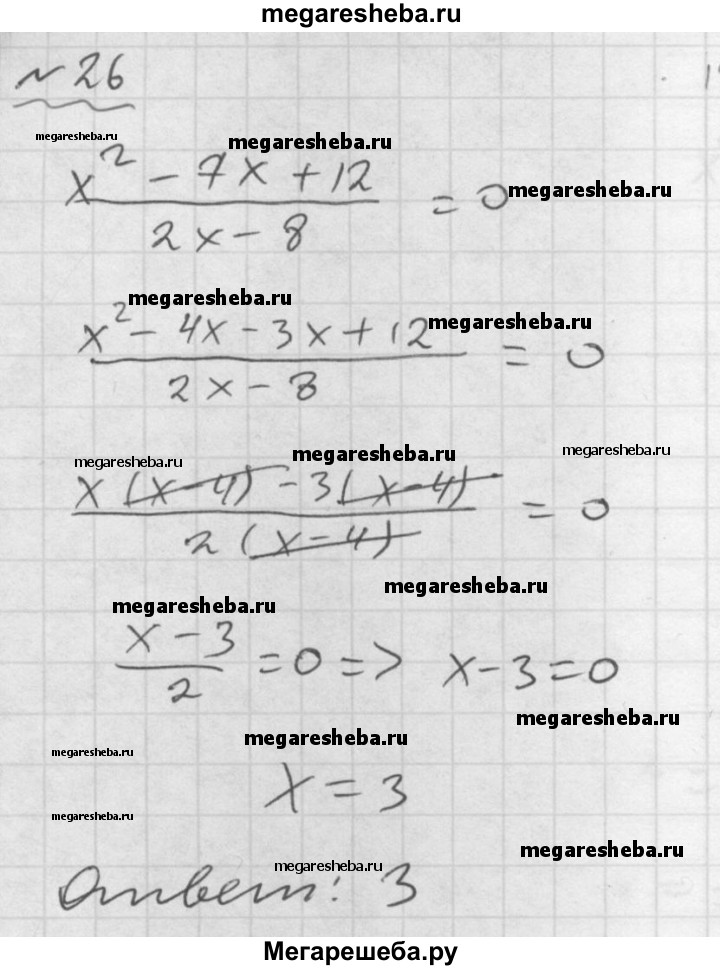 megaresheba.ru
№ 26
megaresheba.ru
megaresheba.ru
x² - 7x + 12
= 0
megaresheba.ru
2x - 8
megaresheba.ru
x² - 4x - 3x + 12
megaresheba.ru
= 0
2x - 8
megaresheba.ru
megaresheba.ru
megaresheba.ru
x(x-4) - 3(x-4)
= 0
2(x-4)
megaresheba.ru
megaresheba.ru
x - 3
= 0 => x - 3 = 0
2
megaresheba.ru
megaresheba.ru
megaresheba.ru
x = 3
megaresheba.ru
megaresheba.ru
megaresheba.ru
Ответ: 3
Мегарешеба.ру